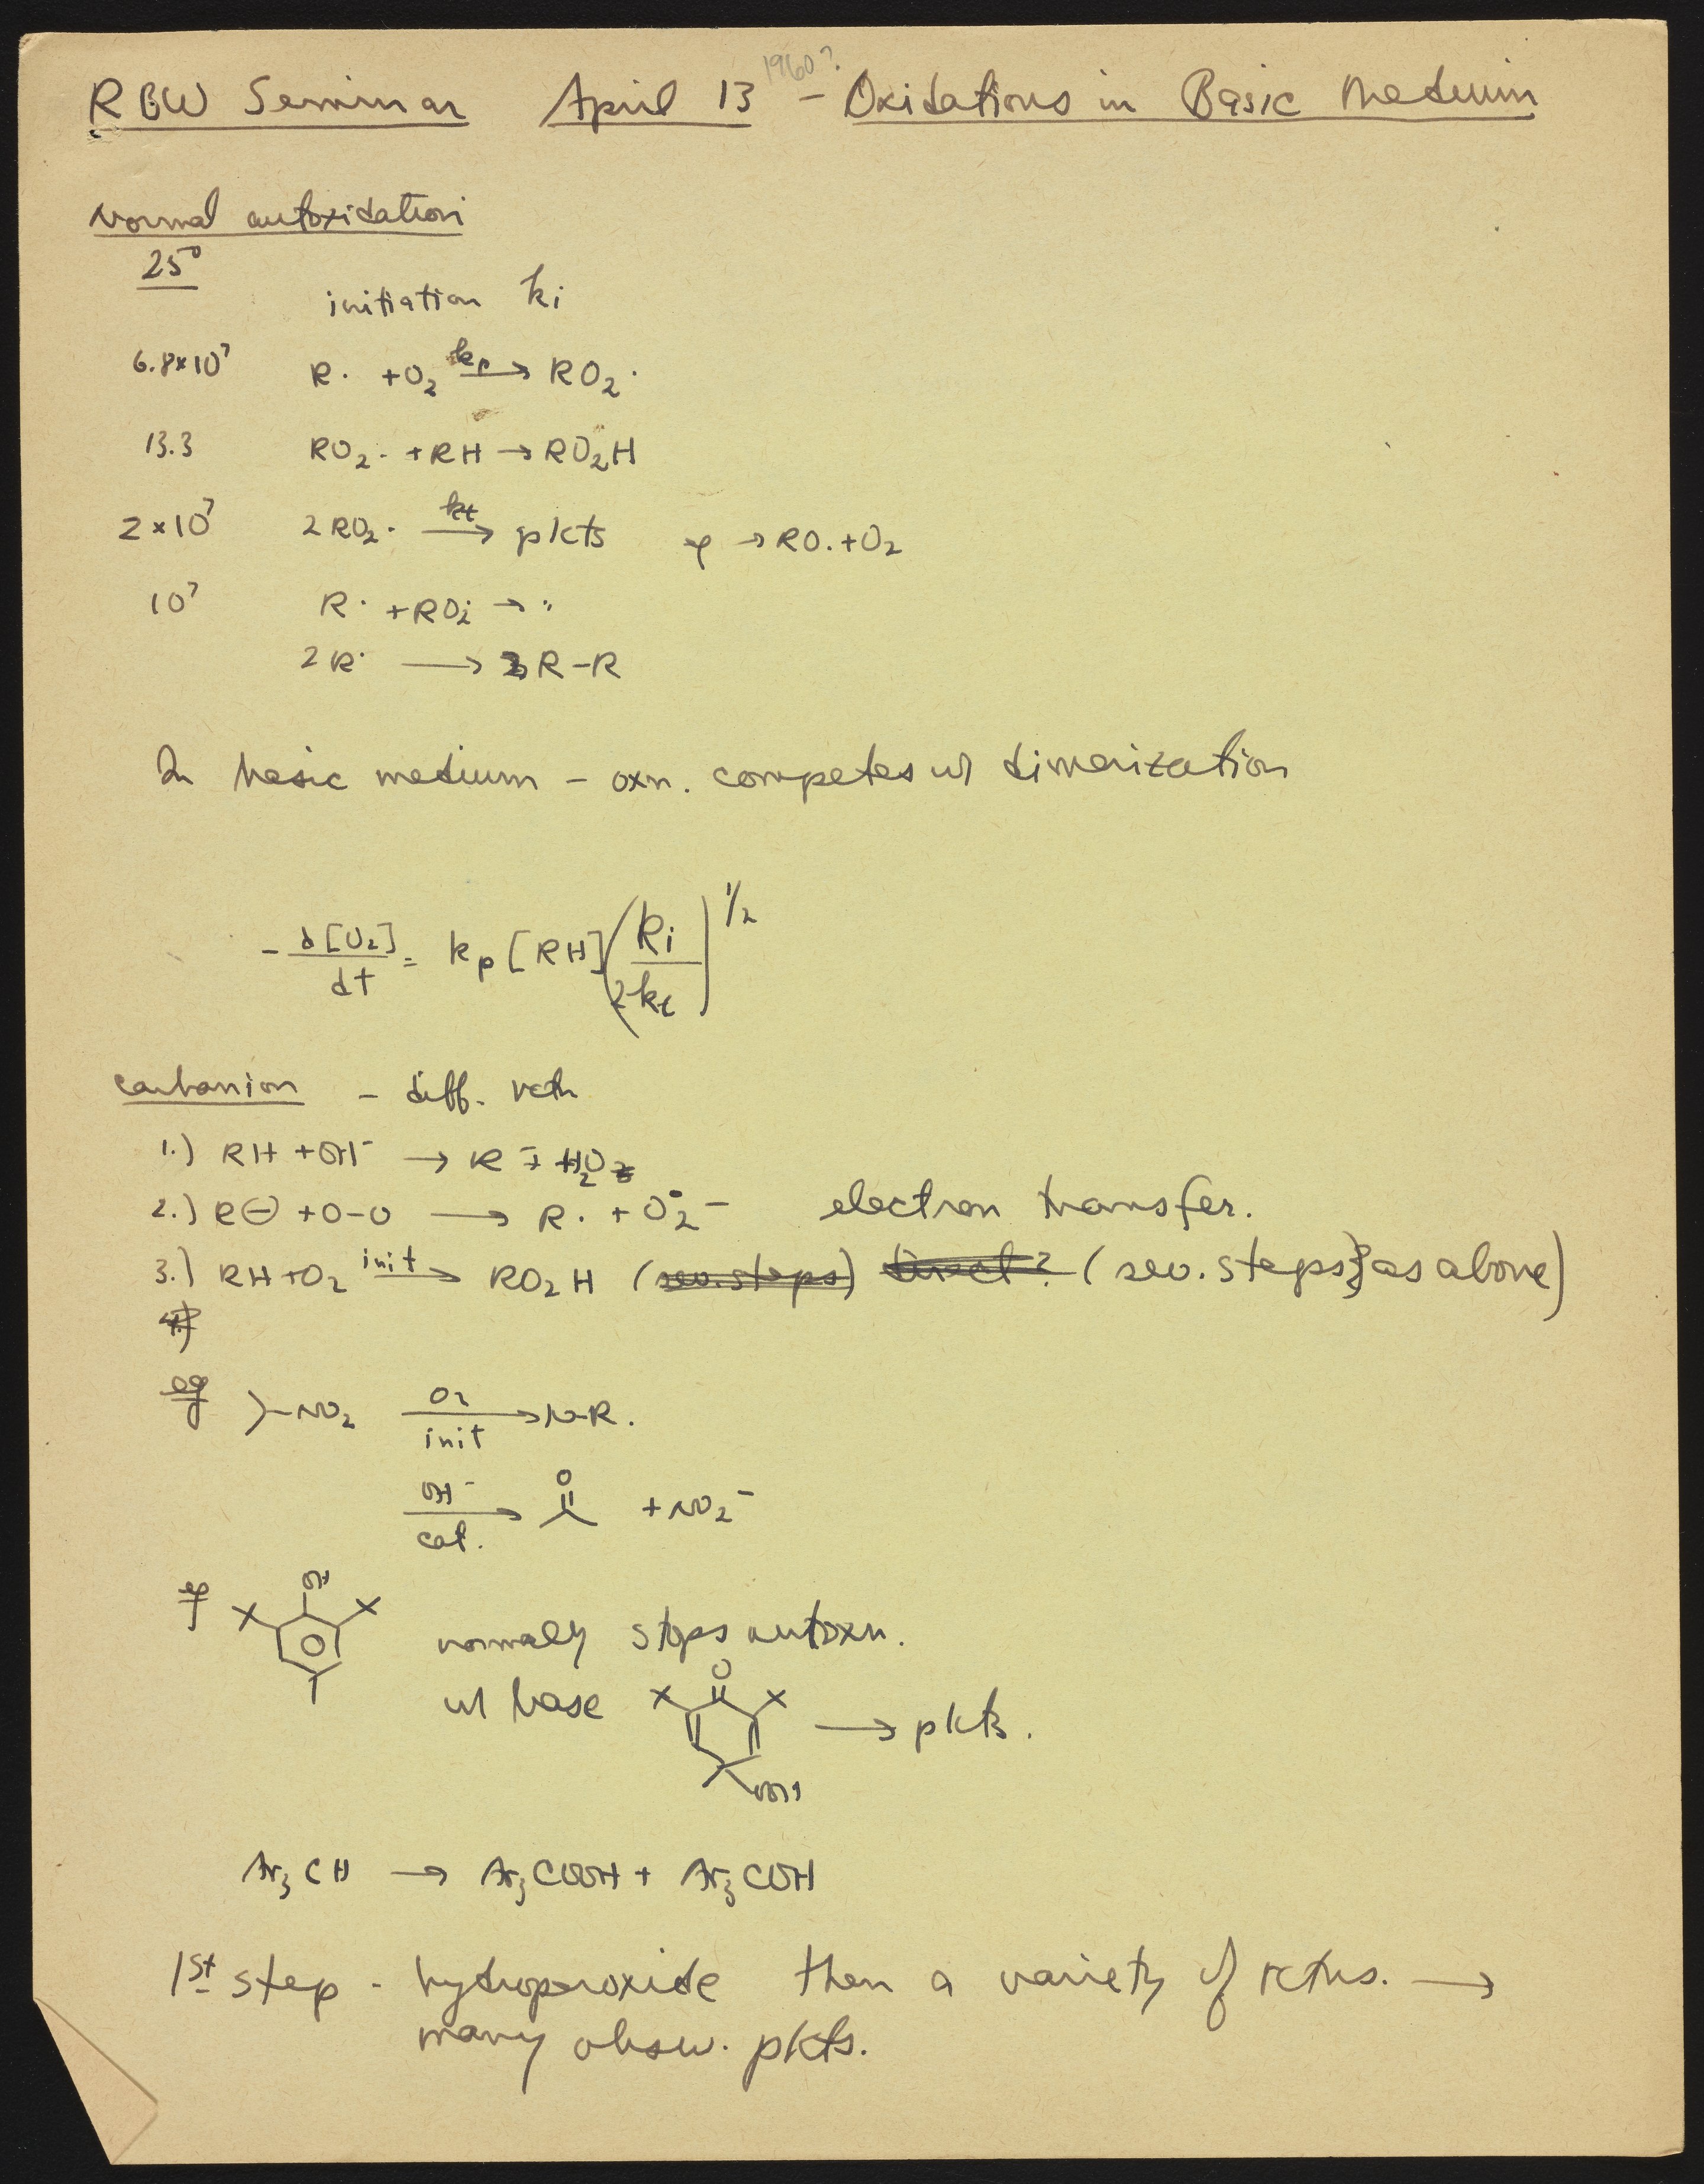 1960?
RBW Seminar April 13 – Oxidations in Basic Medium
Normal autoxidation
25°
initiation ki
6.8×10⁷ R· + O₂ kp→ RO₂·
13.3 RO₂· + RH → RO₂H
2×10⁷ 2RO₂· kt→ pkts → RO· + O₂
10⁷ R· + RO₂· → "
2R· → R–R
In basic medium – oxn. competes w/ dimerization
- d[O₂]/dt = kp [RH] (Ri/2kt)^1/2
carbanion – diff. rctn
1.) RH + OH⁻ → R⁻ + H₂O
2.) R⊖ + O–O → R· + O₂·⁻ electron transfer.
3.) RH + O₂ init→ RO₂H (sev. steps) direct? (sev. steps} as above)
4.)
eg >–NO₂ O₂/init→ N.R.
OH⁻/cat.→ O + NO₂⁻
eg OH
normally stops autoxn.
w/ base O OOH → pkts.
Ar₃CH → Ar₃COOH + Ar₃COH
1st step - hydroperoxide then a variety of rctns. →
many obsw. pkts.